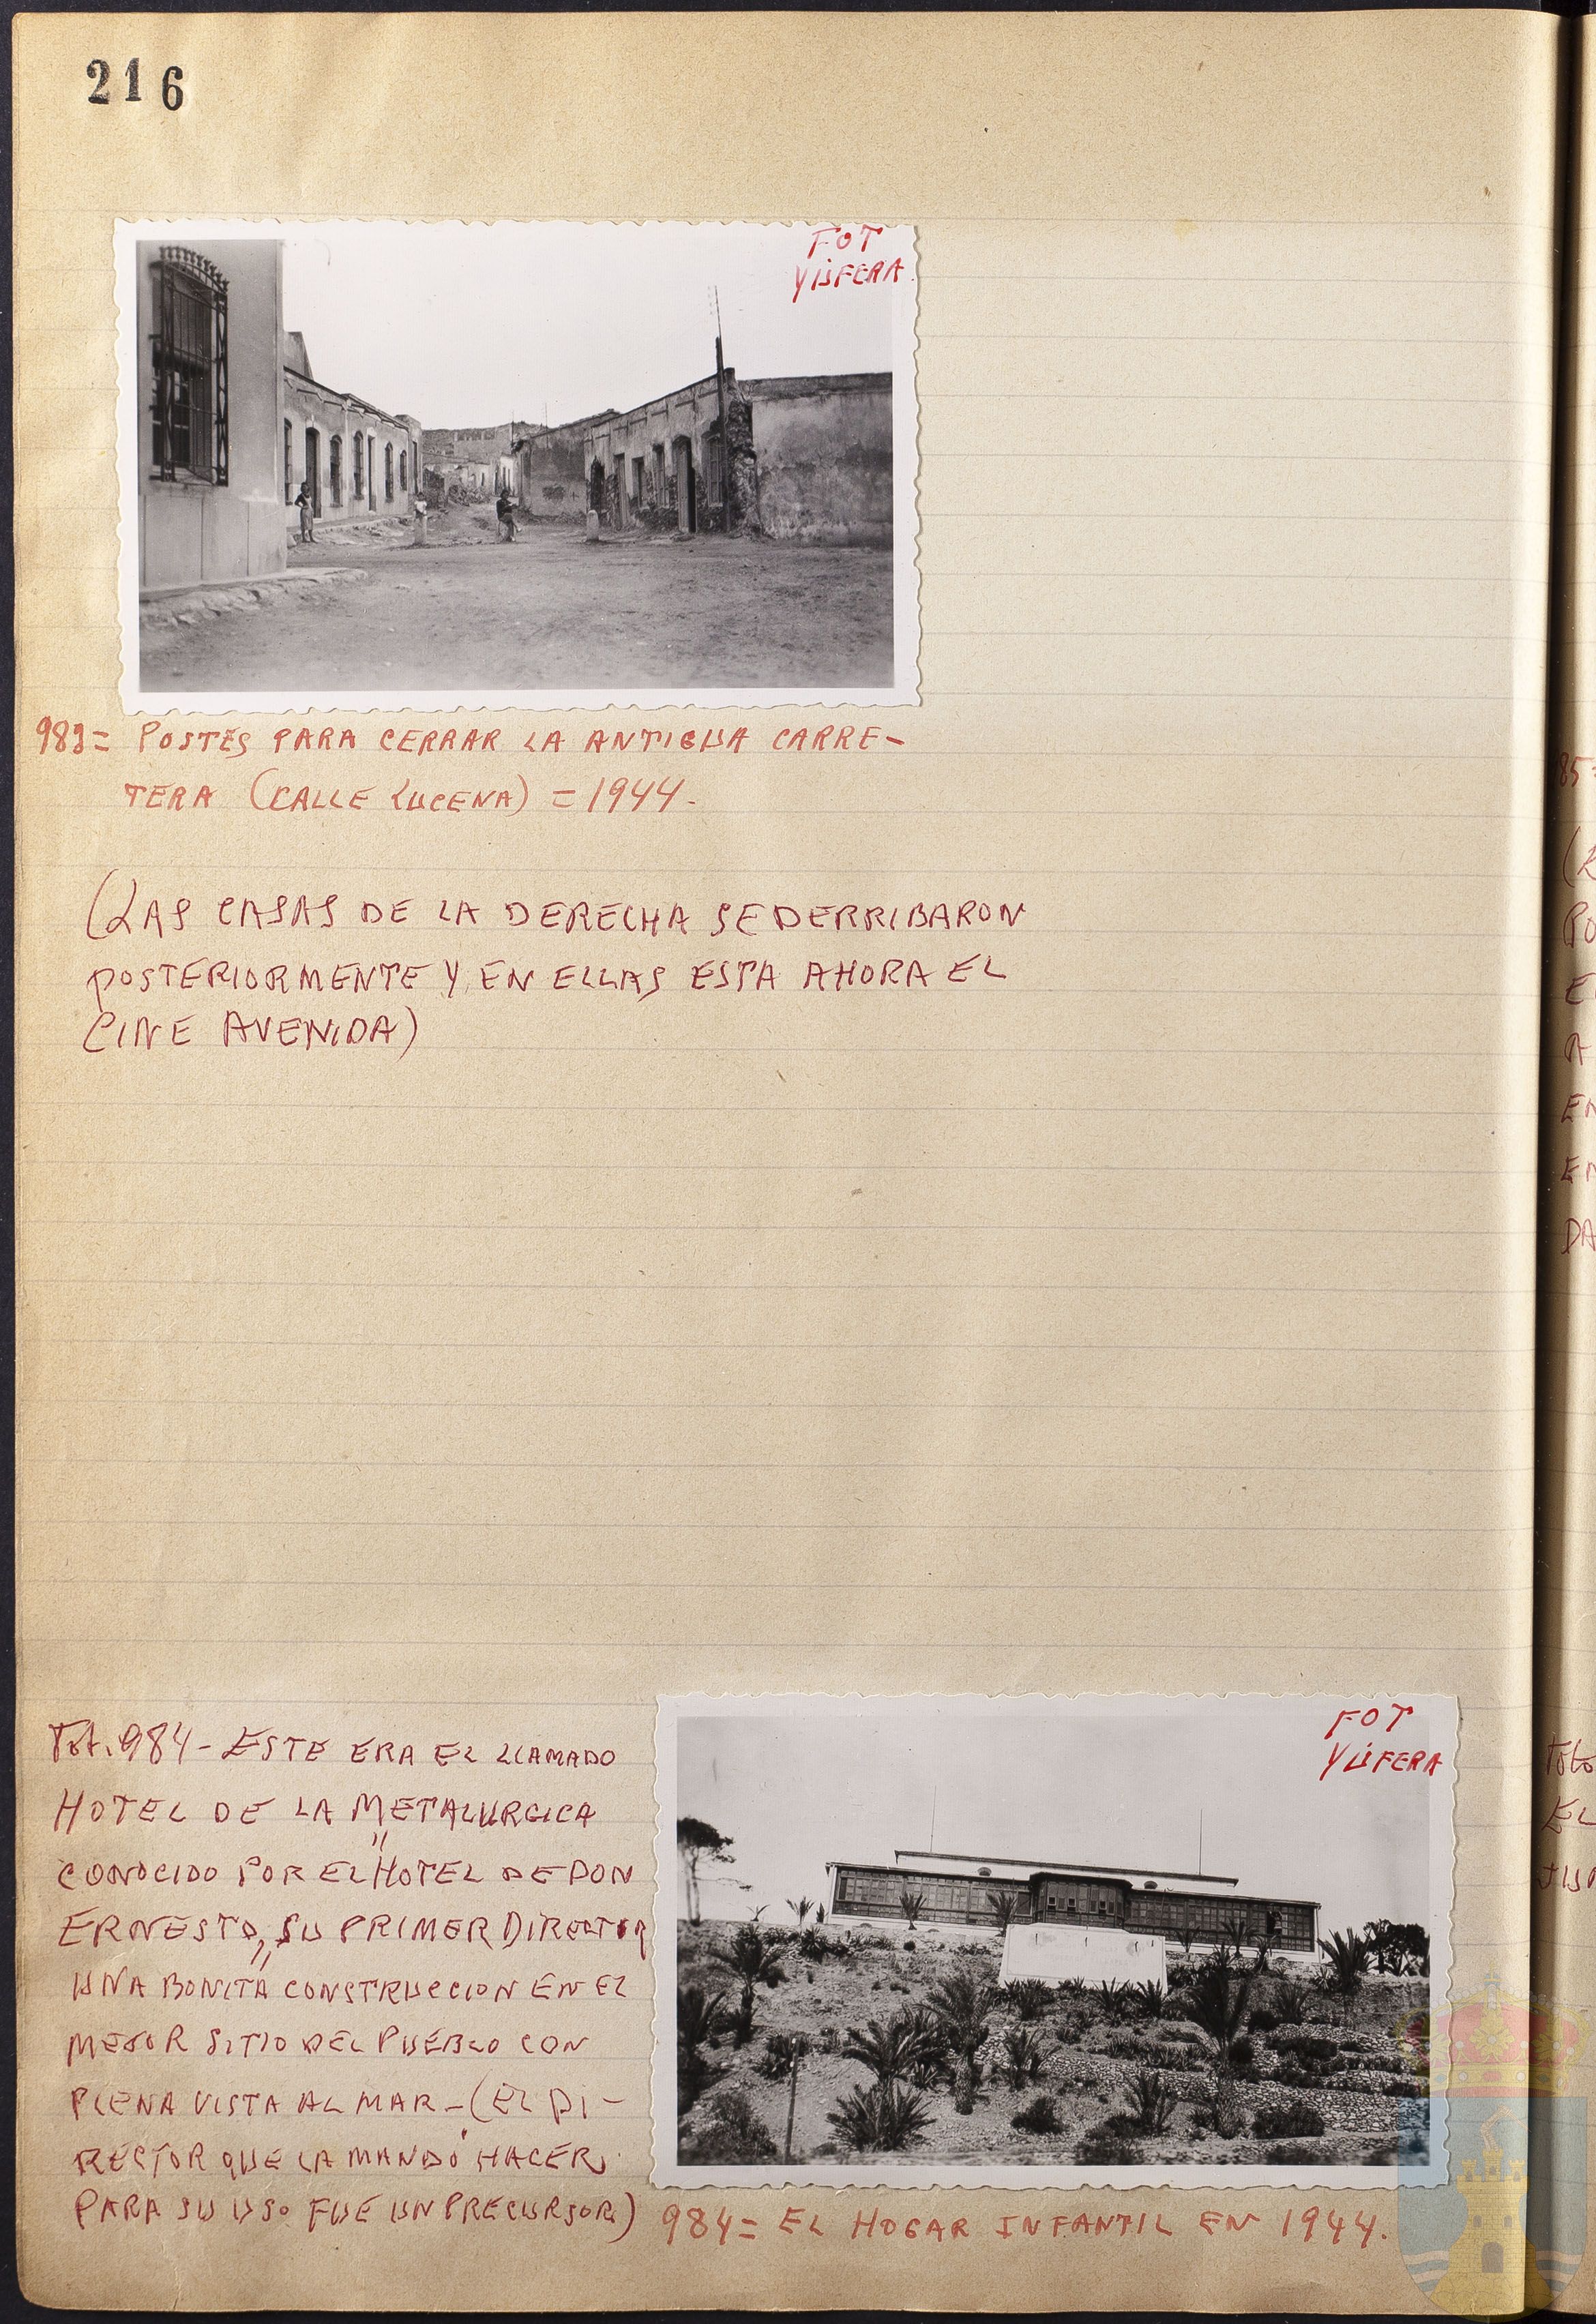 216
FOT
YÚFERA
983= POSTES PARA CERRAR LA ANTIGUA CARRE-
TERA (CALLE LUCENA) = 1944.
(LAS CASAS DE LA DERECHA SE DERRIBARON
POSTERIORMENTE Y EN ELLAS ESTA AHORA EL
CINE AVENIDA)
Fot. 984 - ESTE ERA EL LLAMADO
HOTEL DE LA METALURGICA
CONOCIDO POR EL "HOTEL DE DON
ERNESTO," SU PRIMER DIRECTOR
UNA BONITA CONSTRUCCION EN EL
MEJOR SITIO DEL PUEBLO CON
PLENA VISTA AL MAR - (EL DI-
RECTOR QUE LA MANDÓ HACER
PARA SU USO FUE UN PRECURSOR)
FOT
YÚFERA
984= EL HOGAR INFANTIL EN 1944.